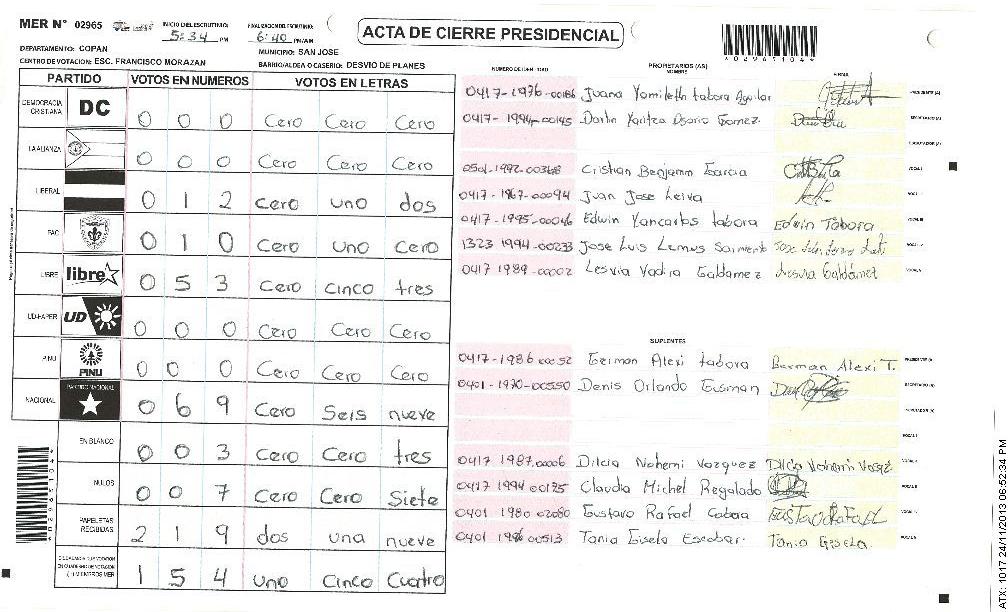 MER Nº 02965
INICIO DEL ESCRUTINIO:
5:34 PM
FINALIZACION DEL ESCRUTINIO:
6:40 PM/AM
ACTA DE CIERRE PRESIDENCIAL
DEPARTAMENTO: COPAN
MUNICIPIO: SAN JOSE
CENTRO DE VOTACION: ESC. FRANCISCO MORAZAN
BARRIO/ALDEA O CASERIO: DESVIO DE PLANES
PARTIDO VOTOS EN NUMEROS VOTOS EN LETRAS
DEMOCRACIA CRISTIANA DC 0 0 0 Cero Cero Cero
LA ALIANZA 0 0 0 Cero Cero Cero
LIBERAL 0 1 2 Cero uno dos
PAC 0 1 0 Cero Uno Cero
LIBRE libre 0 5 3 Cero cinco tres
UD-FAPER UD 0 0 0 Cero Cero Cero
PINU PINU 0 0 0 Cero Cero Cero
NACIONAL PARTIDO NACIONAL 0 6 9 Cero Seis nueve
EN BLANCO 0 0 3 Cero Cero tres
NULOS 0 0 7 Cero Cero Siete
PAPELETAS RECIBIDAS 2 1 9 dos una nueve
1 5 4 uno Cinco Cuatro
PROPIETARIOS (AS)
NOMBRE
FIRMA
0417-1976-00186 Juana Yomileth tabora Aguilar
0417-1994-00145 Darlin Yaritza Osorio Gomez
0501-1992-00368 Cristian Benjamin Garcia
0417-1967-00094 Juan Jose Leiva
0417-1995-00046 Edwin Yancarlos tabora Edwin Tabora
1323 1994-00233 Jose Luis Lemus Sarmiento
0417 1989-00002 Lesvia Yadira Galdamez Lesvia Galdámez
SUPLENTES
0417-1986 00052 German Alexi tabora German Alexi T.
0401-1970-00550 Denis Orlando Gusman
0417 1987.00006 Dilcia Nohemi Vazquez Dilcia Nohemi Vazqz
0417 1994 00125 Claudia Michel Regalado
0401 1980 02080 Gustavo Rafael Cabera GUSTAVO RAFAEL
0401 1986 00513 Tania Gisela Escobar Tania Gisela
ATX: 1017 24/11/2013 06:52:34 PM